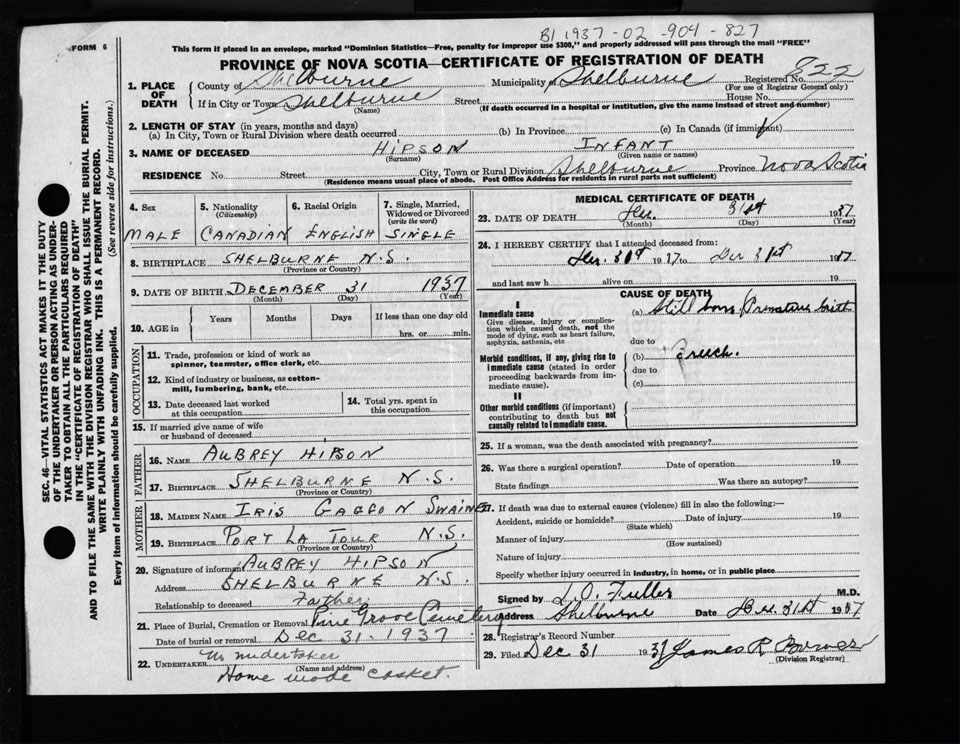 B1 1937-02-904-827
FORM 6
This form if placed in an envelope, marked "Dominion Statistics—Free, penalty for improper use $300," and properly addressed will pass through the mail "FREE"
PROVINCE OF NOVA SCOTIA—CERTIFICATE OF REGISTRATION OF DEATH
1. PLACE OF DEATH
County of Shelburne Municipality of Shelburne Registered No. 822
(For use of Registrar General only)
If in City or Town Shelburne Street House No.
(Name) (If death occurred in a hospital or institution, give the name instead of street and number)
2. LENGTH OF STAY (in years, months and days)
(a) In City, Town or Rural Division where death occurred (b) In Province (c) In Canada (if immigrant)
3. NAME OF DECEASED HIPSON INFANT
(Surname) (Given name or names)
RESIDENCE No. Street City, Town or Rural Division Shelburne Province Nova Scotia
(Residence means usual place of abode. Post Office Address for residents in rural parts not sufficient)
4. Sex 5. Nationality (Citizenship) 6. Racial Origin 7. Single, Married, Widowed or Divorced (write the word)
MALE CANADIAN ENGLISH SINGLE
8. BIRTHPLACE SHELBURNE N.S.
(Province or Country)
9. DATE OF BIRTH DECEMBER 31 1937
(Month) (Day) (Year)
10. AGE in Years Months Days If less than one day old
hrs. or min.
OCCUPATION
11. Trade, profession or kind of work as spinner, teamster, office clerk, etc.
12. Kind of industry or business, as cotton-mill, lumbering, bank, etc.
13. Date deceased last worked at this occupation
14. Total yrs. spent in this occupation
15. If married give name of wife or husband of deceased
FATHER
16. NAME AUBREY HIPSON
17. BIRTHPLACE SHELBURNE N.S.
(Province or Country)
MOTHER
18. MAIDEN NAME IRIS SWAINE
19. BIRTHPLACE PORT LA TOUR N.S.
(Province or Country)
20. Signature of informant AUBREY HIPSON
Address SHELBURNE N.S.
Relationship to deceased Father
21. Place of Burial, Cremation or Removal Pine Grove Cemetery
Date of burial or removal Dec 31. 1937
22. UNDERTAKER No undertaker
(Name and address)
Home made casket.
MEDICAL CERTIFICATE OF DEATH
23. DATE OF DEATH Dec. 31st 1937
(Month) (Day) (Year)
24. I HEREBY CERTIFY that I attended deceased from:
Dec. 31st 1937 to Dec 31st 1937
and last saw h alive on 19
CAUSE OF DEATH
I
Immediate cause
Give disease, injury or complication which caused death, not the mode of dying, such as heart failure, asphyxia, asthenia, etc
(a) Still born Premature birth
due to
Morbid conditions, if any, giving rise to immediate cause (stated in order proceeding backwards from immediate cause).
(b) Breech.
due to
(c)
II
Other morbid conditions (if important) contributing to death but not causally related to immediate cause.
25. If a woman, was the death associated with pregnancy?
26. Was there a surgical operation? Date of operation 19
State findings Was there an autopsy?
27. If death was due to external causes (violence) fill in also the following:—
Accident, suicide or homicide? Date of injury 19
(State which)
Manner of injury
(How sustained)
Nature of injury
Specify whether injury occurred in industry, in home, or in public place
Signed by Fuller M.D.
Address Shelburne Date Dec. 31st 1937
28. Registrar's Record Number
29. Filed Dec 31 1937 James R.
(Division Registrar)
SEC. 46—VITAL STATISTICS ACT MAKES IT THE DUTY
OF THE UNDERTAKER OR PERSON ACTING AS UNDER-
TAKER TO OBTAIN ALL THE PARTICULARS REQUIRED
IN THE "CERTIFICATE OF REGISTRATION OF DEATH"
AND TO FILE THE SAME WITH THE DIVISION REGISTRAR WHO SHALL ISSUE THE BURIAL PERMIT.
WRITE PLAINLY WITH UNFADING INK. THIS IS A PERMANENT RECORD.
Every item of information should be carefully supplied. (See reverse side for instructions.)